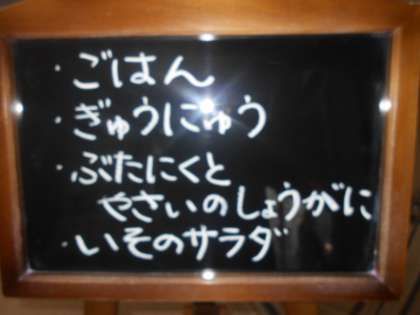 ・ごはん
・ぎゅうにゅう
・ぶたにくと
やさいのしょうがに
・いそのサラダ